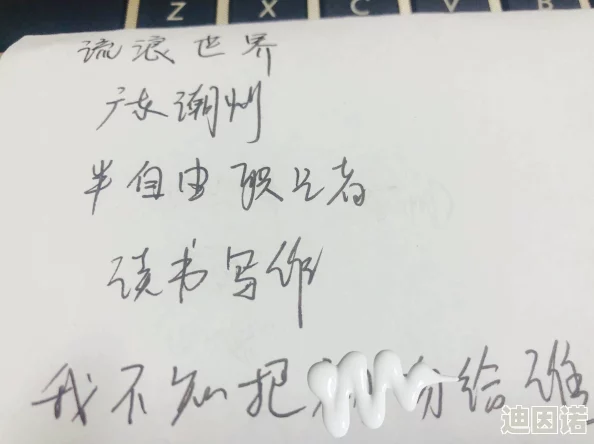 Z X C V B
流浪世界
广东潮州
半自由职业者
读书写作
我不知把 份给谁
迪因诺